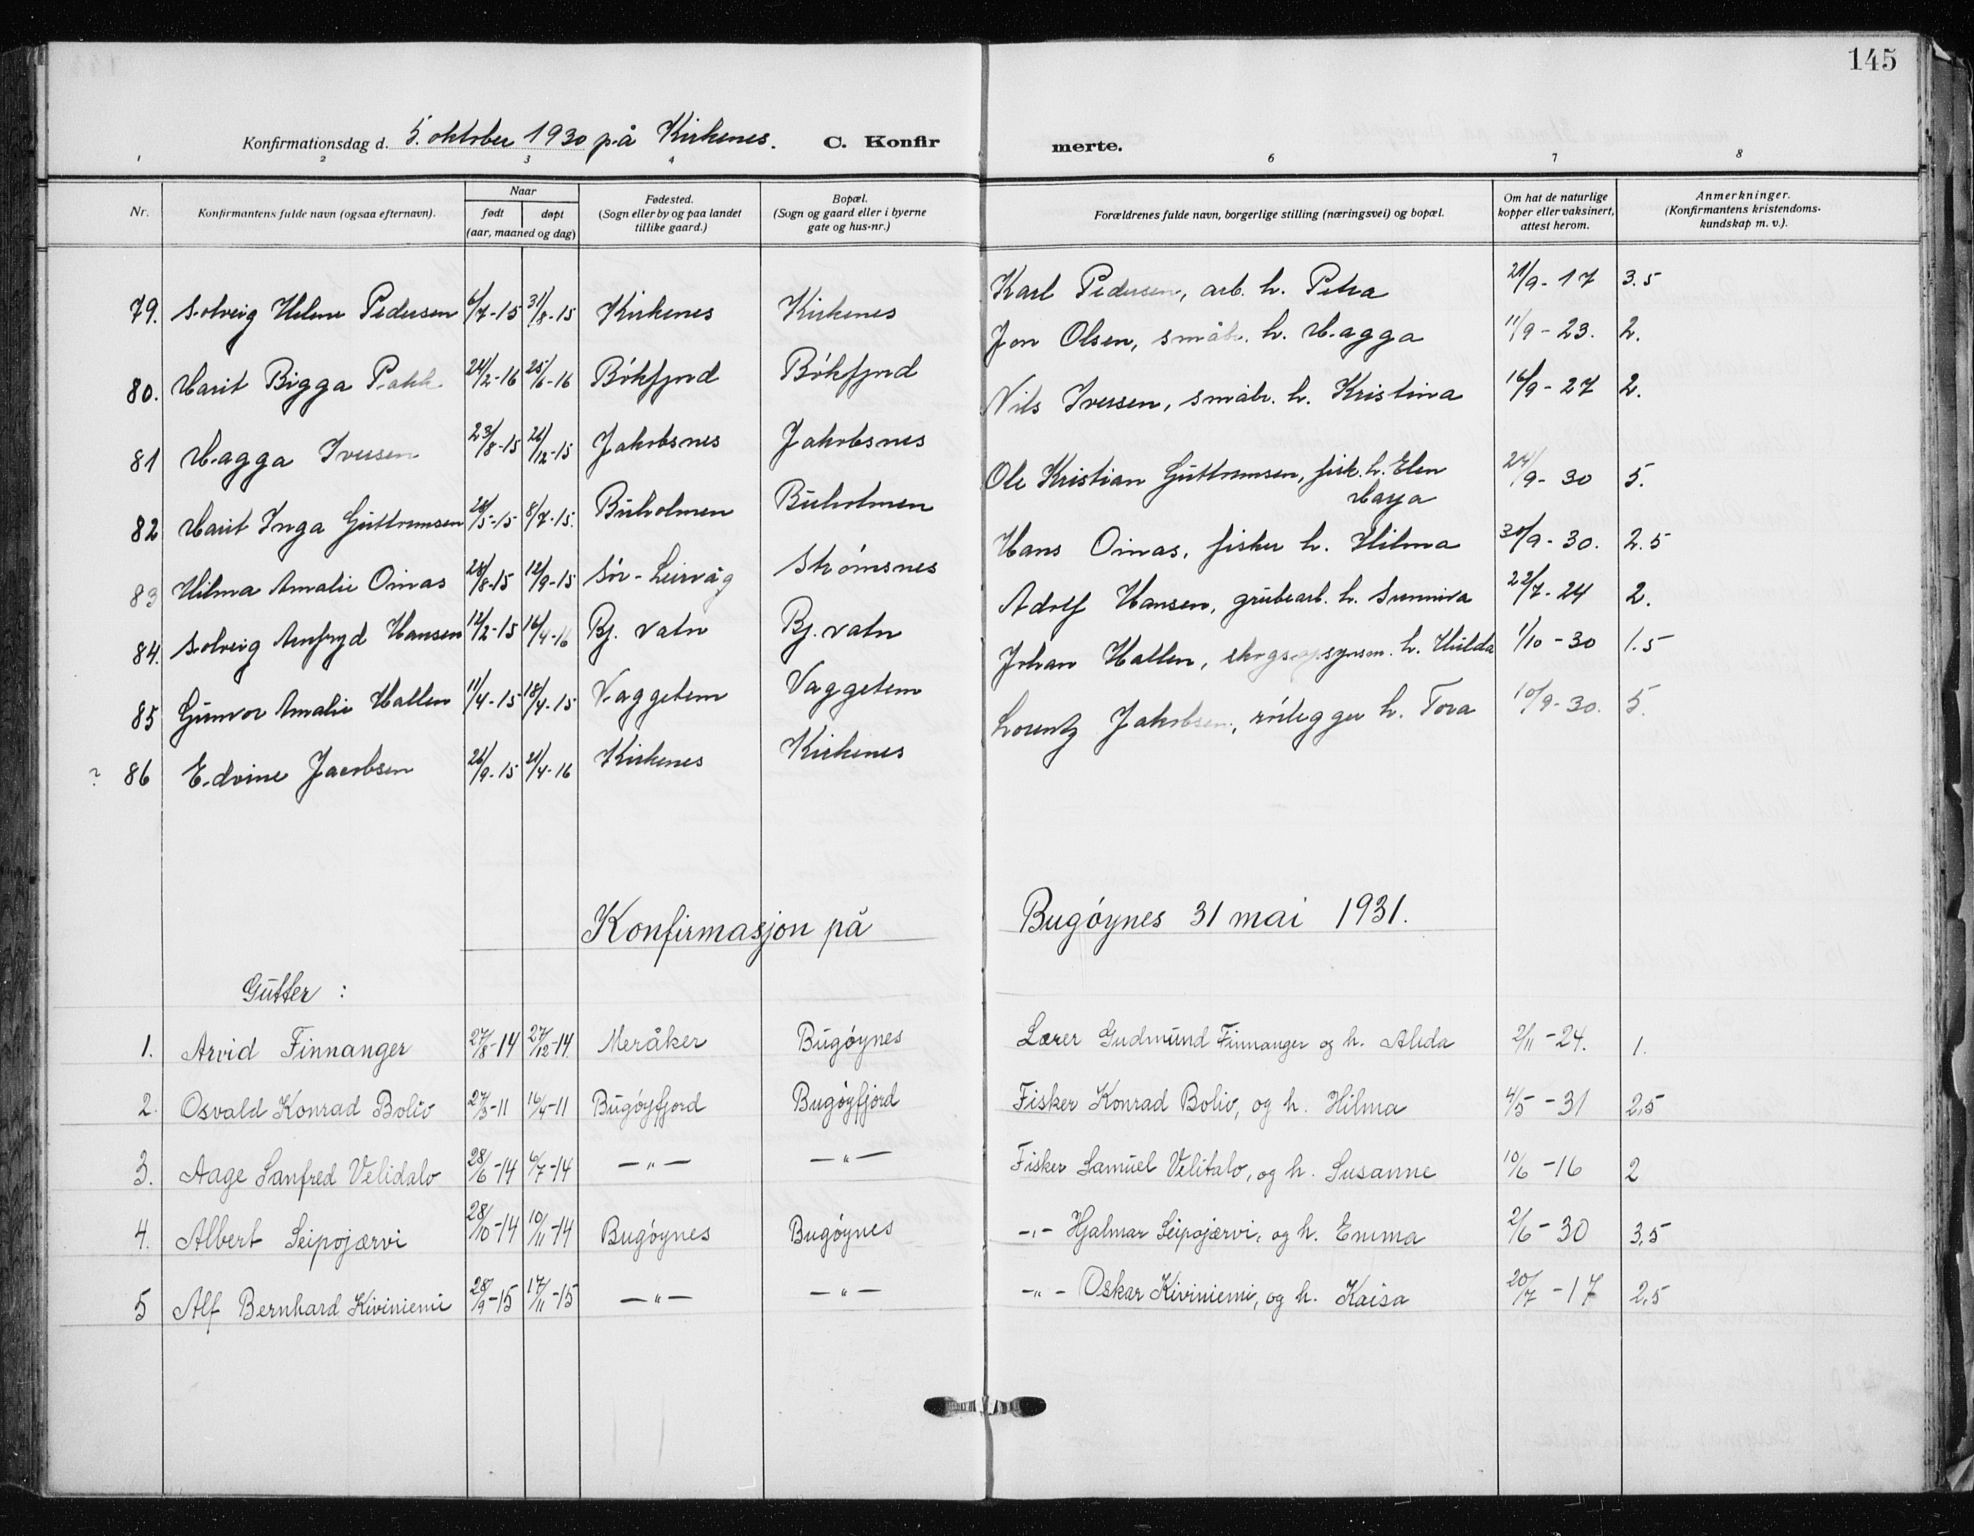 145
Konfirmationsdag d. 5. oktober 1930 på Kirkenes. C. Konfir merte.
1 2 3 4 6 7 8
Nr. Konfirmantens fulde navn (ogsaa efternavn). Naar født døpt (aar, maaned og dag) Fødested. (Sogn eller by og paa landet tillike gaard.) Bopæl. (Sogn og gaard eller i byerne gate og hus-nr.) Forældrenes fulde navn, borgerlige stilling (næringsvei) og bopæl. Om hat de naturlige kopper eller vaksinert, attest herom. Anmerkninger. (Konfirmantens kristendoms-kundskap m. v.).
79. Solveig Helene Pedersen 6/7-15 31/8-15 Kirkenes Kirkenes Karl Pedersen, arb. h. Petra 21/9-17 3.5
80. Marit Bigga 24/2-16 25/6-16 Bókfjord Bókfjord Jon Olsen, småbr. h. Magga 11/9-23. 2.
81 Magga Iversen 23/8-15 26/12-15 Jakobsnes Jakobsnes Nils Iversen, småbr. h. Kristina 16/9-27 2.
82 Marit Inga Guttormsen 28/5-15 8/7-15. Buholmen Buholmen Ole Kristian Guttormsen, fisk. h. Elen Marja 24/9-30 5.
83 Hilma Amalie Oinas 28/8-15 12/9-15 Sór-Leirvåg Strómsnes Hans Oinas, fisker h. Hilma 30/9-30. 2.5
84. Solveig Hansen 12/2-15 16/4-16 Bj. vatn Bj. vatn Adolf Hansen, grubearb. h. Sunniva 22/7-24 2.
85 Gunvor Amalie Hallen 11/4-15 18/4-15 Vaggetem Vaggetem Johan Hallen, skogsopsynsm. h. Hilda 1/10-30 1.5
? 86 Edvine Jacobsen 26/9-15 21/4-16 Kirkenes Kirkenes Lorentz Jakobsen, rórlegger h. Tora 10/9-30. 5.
Konfirmasjon på Bugóynes 31 mai 1931.
Gutter :
1. Arvid Finnanger 27/8-14 27/12-14 Meråker Bugóynes Lærer Gudmund Finnanger og h. Alida 2/11-24. 1.
2. Osvald Konrad Boliv 27/3-11 16/4-11 Bugóyfjord Bugóyfjord Fisker Konrad Boliv, og h. Hilma 4/5-31 2,5
3. Aage Sanfred Velidalo 28/6-14 6/7-14 —"— —"— Fisker Samuel Velitalo, og h. Susanne 10/6-16 2
4. Albert Seipojærvi 28/10-14 10/11-14 Bugóynes Bugóynes -"- Hjalmar Seipojærvi, og h. Emma 2/6-30 3,5
5 Alf Bernhard Kiviniemi 28/9-15 17/11-15 —"— —"— -"- Oskar Kiviniemi, og h. Kaisa 20/7-17 2,5